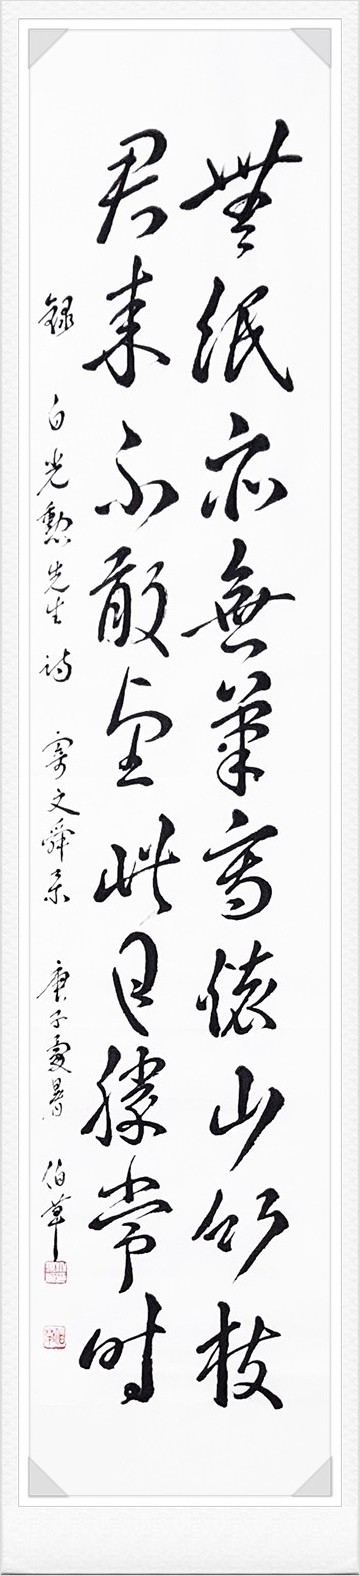 無紙亦無筆寫懷山竹枝
君來不敢望此日勝常時
錄 白光勳先生詩 寄文舜系 庚子處暑 伯草